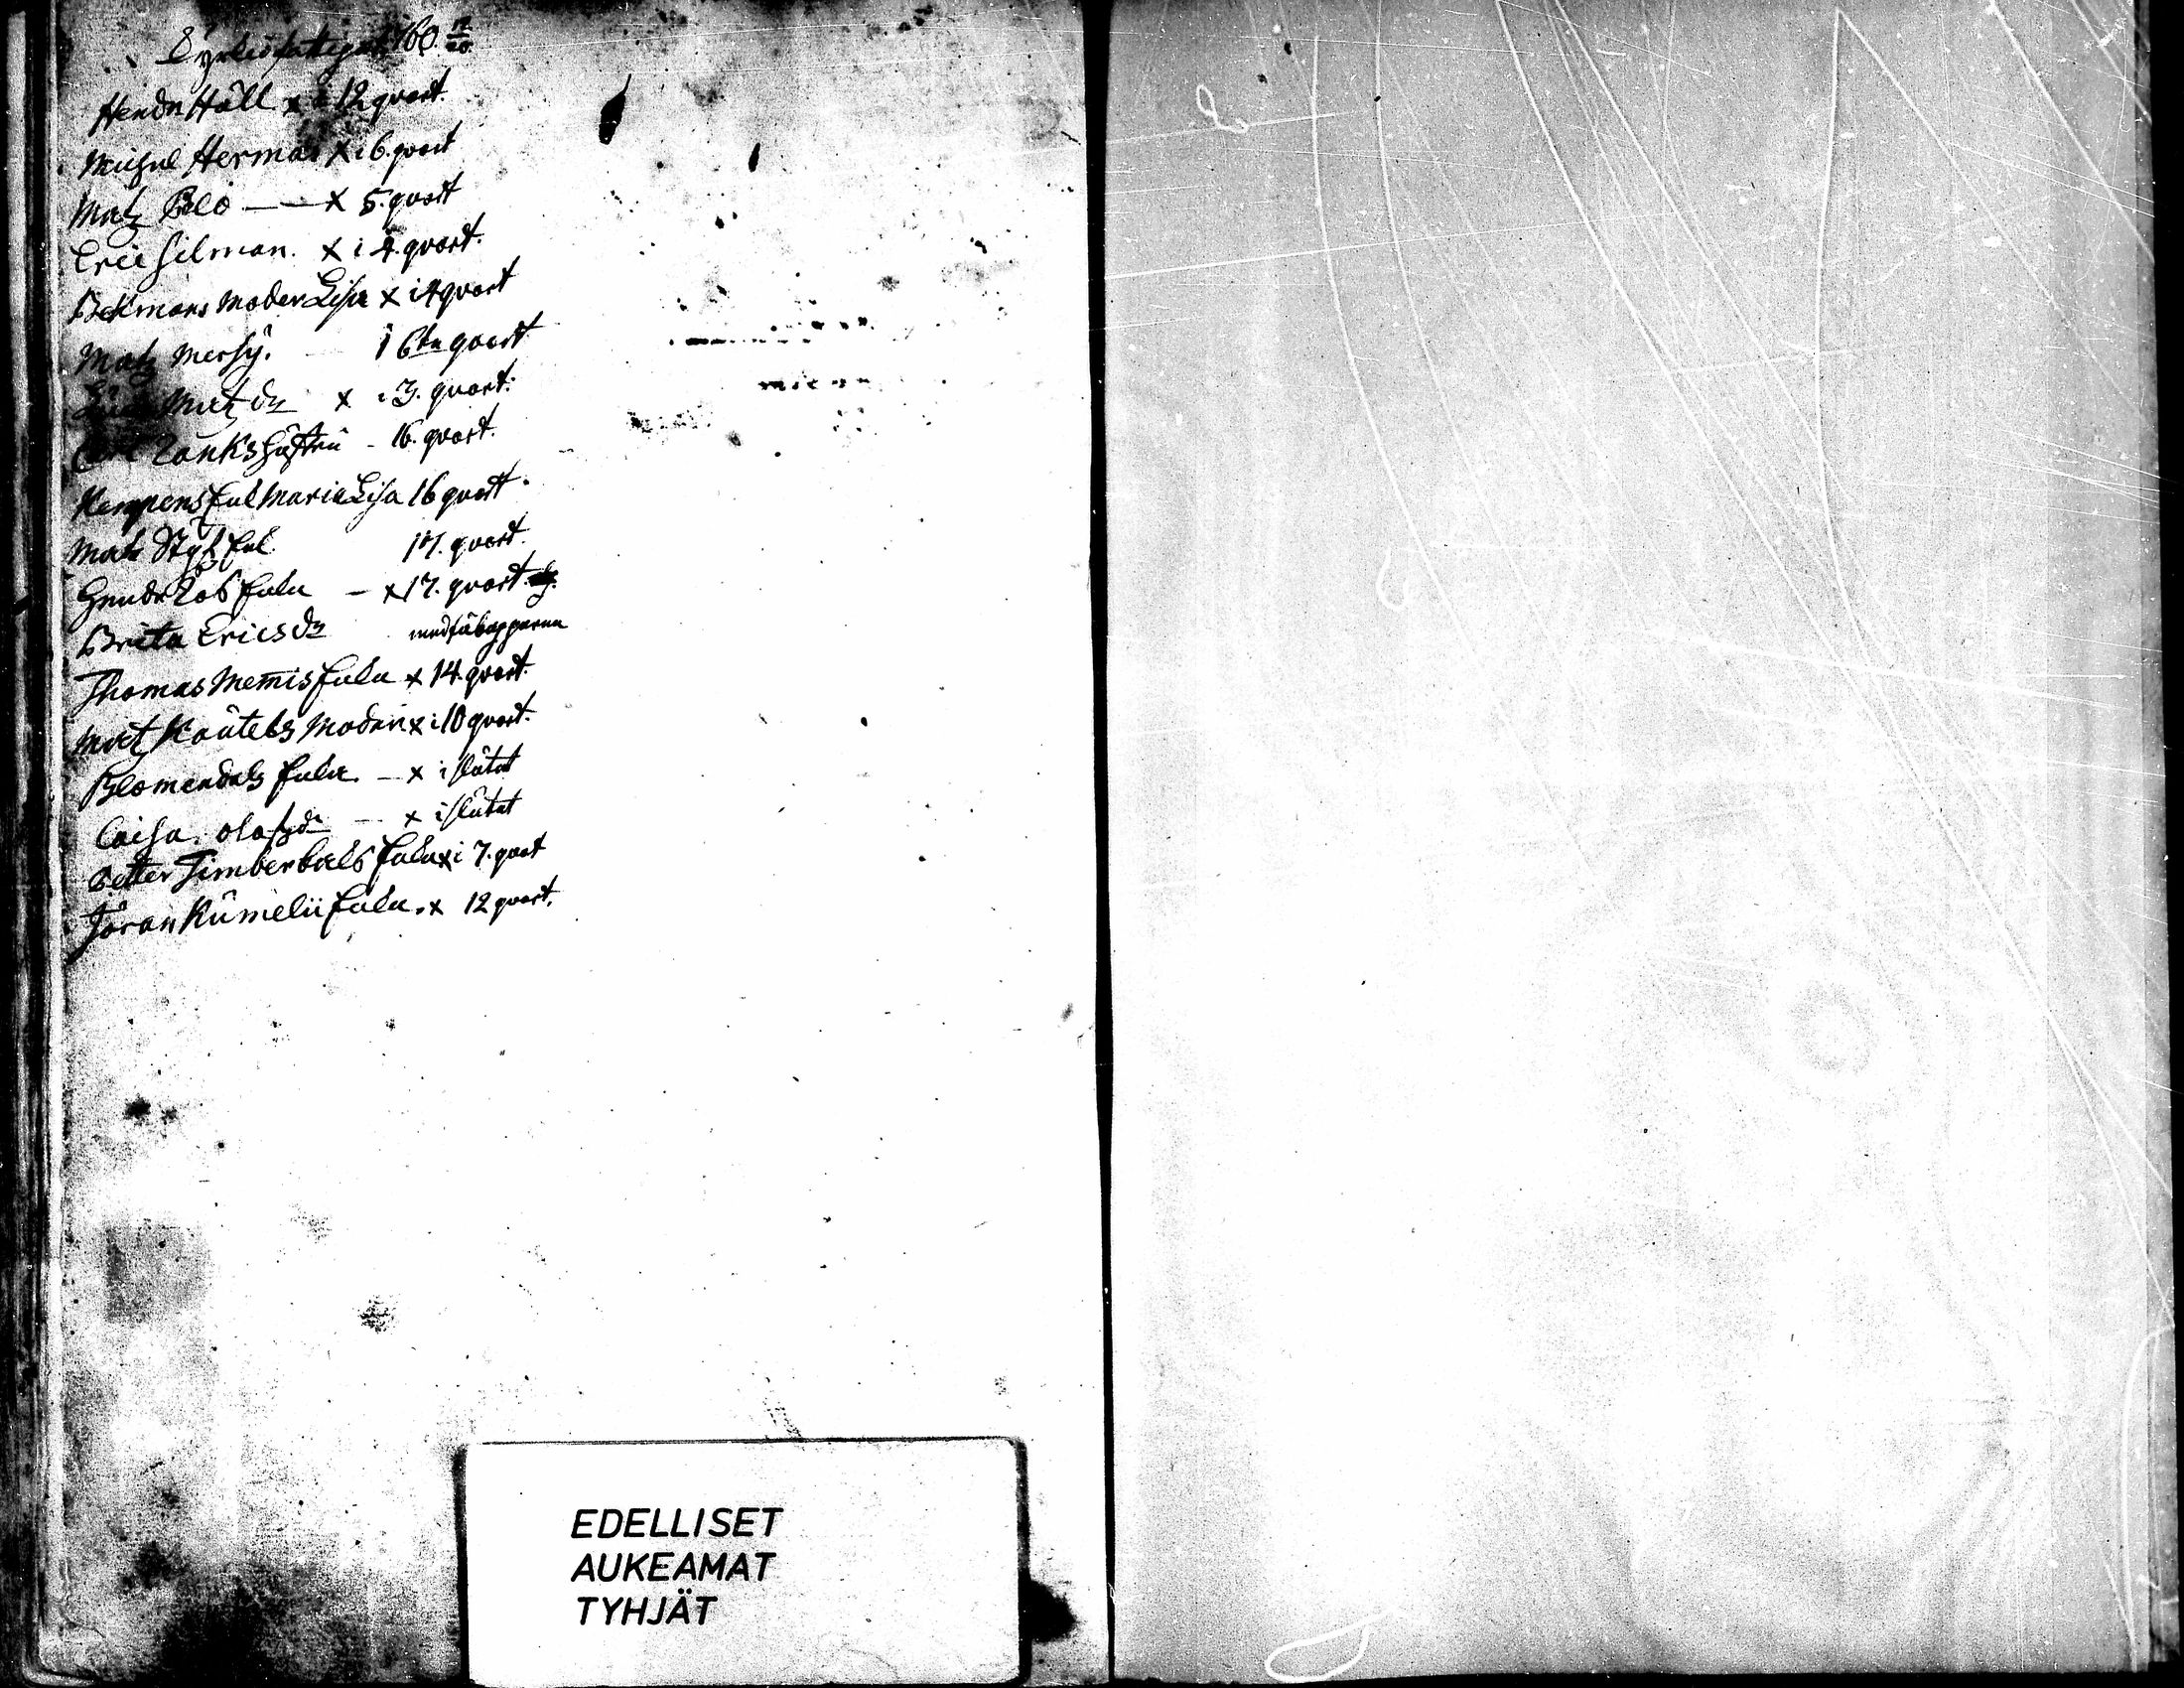 160. 17/20
Hendr Häll x i 12 qvart.
Michel Herman x i 6. qvart
Matz Pelo — — x 5. qvart
Eric Hilman. x i 4. qvart.
Bekmans moder Lisa x i 4 qvart
Matz i 6te qvart
Matz dr x i 3. qvart.
Hustru - 16. qvart.
Enk Maria Lisa 16 qvart.
Matz Enk 17. qvart.
Hendr Enka — x 17. qvart.
Brita Ericsdr
Thomas Memis Enka x 14. qvart.
Matz Moder x i 10 qvart.
Blomendals Enka — x i slutet
Caisa Olofsdr — x i slutet
Petter Timberbacks Enka x i 7. qvart
Jöran Kumelii Enka. x 12 qvart.
EDELLISET
AUKEAMAT
TYHJÄT